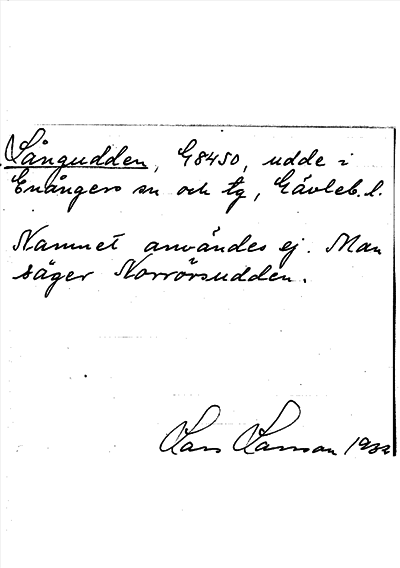 Långudden, G8450, udde i
Enångers sn och tg, Gävleb. l.
Namnet användes ej. Man
säger Norrörsudden.
Lars Larsson 1932